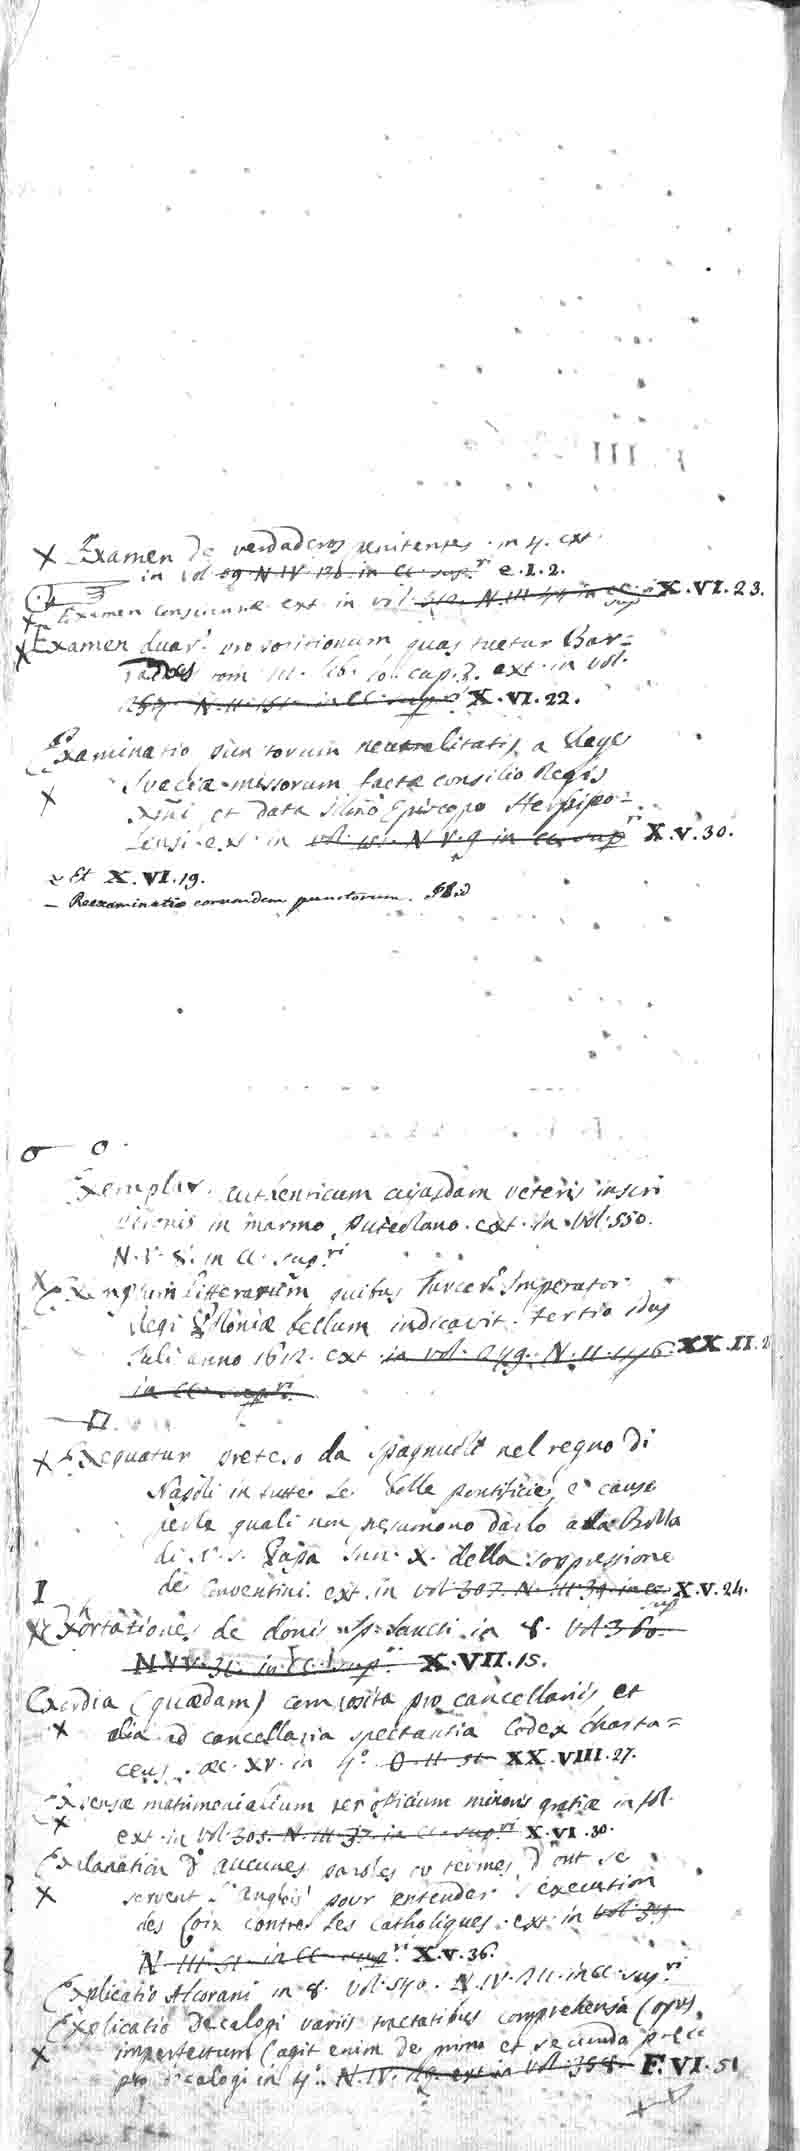 Examen de verdaderos penitentes in 4. ext.
in vol 69 N IV 126 in cl. sup.ri e.I.2.
Examen conscientiæ ext. in vol. N. III in cl. sup X.VI.23.
Examen duar. propositionum quas tuetur Bar=
tom. lib. 10. cap. 3. ext. in vol.
267. N. II. 151. in cl. sup. X.VI.22.
Examinatio punctorum neutralitatis a Rege
Sveciæ missorum facta consilio Regis
Xmi et data Episcopo Herbipo=
lensi. ext. in vol. N. V. 9 in cl. sup ri X.V.30.
Et X.VI.19.
— Reexaminatio eorumdem punctorum. Ibid
Exemplar authenticum cujusdam veteris inscri
ptionis in marmo Puteolano. ext. in Vol. 550.
N. V. 8. in cl. sup.ri
Exemplum litterarum quibus Turcar. Imperator
Regi Poloniæ bellum indicavit. tertio idus
Julii anno 1612. ext. in vol. 249. N. II. 146. XX.II.
in cl. sup.ri
Exequatur preteso da Spagnuoli nel regno di
Napoli in tutte le bolle pontificie, e cause
per le quali non presumono darlo alla Bolla
di N. S. Papa Inn. X. della soppressione
de Conventini. ext. in vol 307. N. III 39. in cl. sup X.V.24.
I
Exhortationes de donis Sp. Sancti in 8. Vol 360.
N. VV. 31. in cl. sup.ri X.VII.15.
Exordia (quædam) composita pro cancellariis et
alia ad cancellaria spectantia Codex charta=
ceus sæc. XV. in 4.o O. II. 51 XX.VIII.27.
Expensæ matrimonialium per officium minoris gratiæ in fol.
ext. in Vol. 305. N. III. 37. in cl. sup.ri X.VI.30.
Explanation d'aucunes paroles ou termes d'ont se
servent l'Anglois pour entender l'execution
des Loix contre les Catholiques. ext. in vol.
N. III. 51. in cl. sup.ri X.V.36.
Explicatio Alcorani in 8. Vol. 540. N. IV. 211. in cl. sup.ri
Explicatio Decalogi variis tractatibus comprehensa (opus
imperfectum (agit enim de primo et secundo
pro decalogi in 4.o N. IV. 19. ext. in vol. 358. F.VI.51